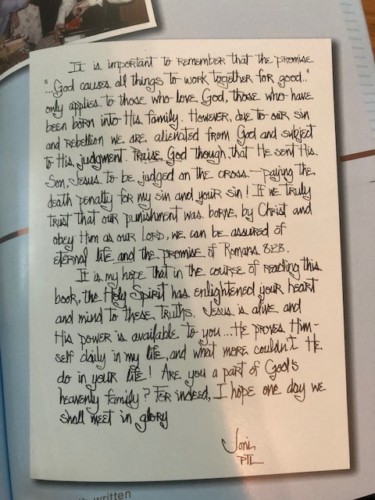 It is important to remember that the promise
"...God causes all things to work together for good..."
only applies to those who love God, those who have
been born into His family. However, due to our sin
and rebellion we are alienated from God and subject
to His judgment. Praise God though, that He sent His
Son, Jesus to be judged on the cross -- paying the
death penalty for my sin and your sin! If we truly
trust that our punishment was borne by Christ and
obey Him as our Lord, we can be assured of
eternal life and the promise of Romans 8:28.
It is my hope that in the course of reading this
book, the Holy Spirit has enlightened your heart
and mind to these truths. Jesus is alive and
His power is available to you... He proves Him-
self daily in my life, and what more couldn't He
do in your life! Are you a part of God's
heavenly family? For indeed, I hope one day we
shall meet in glory
Joni
PTL
written